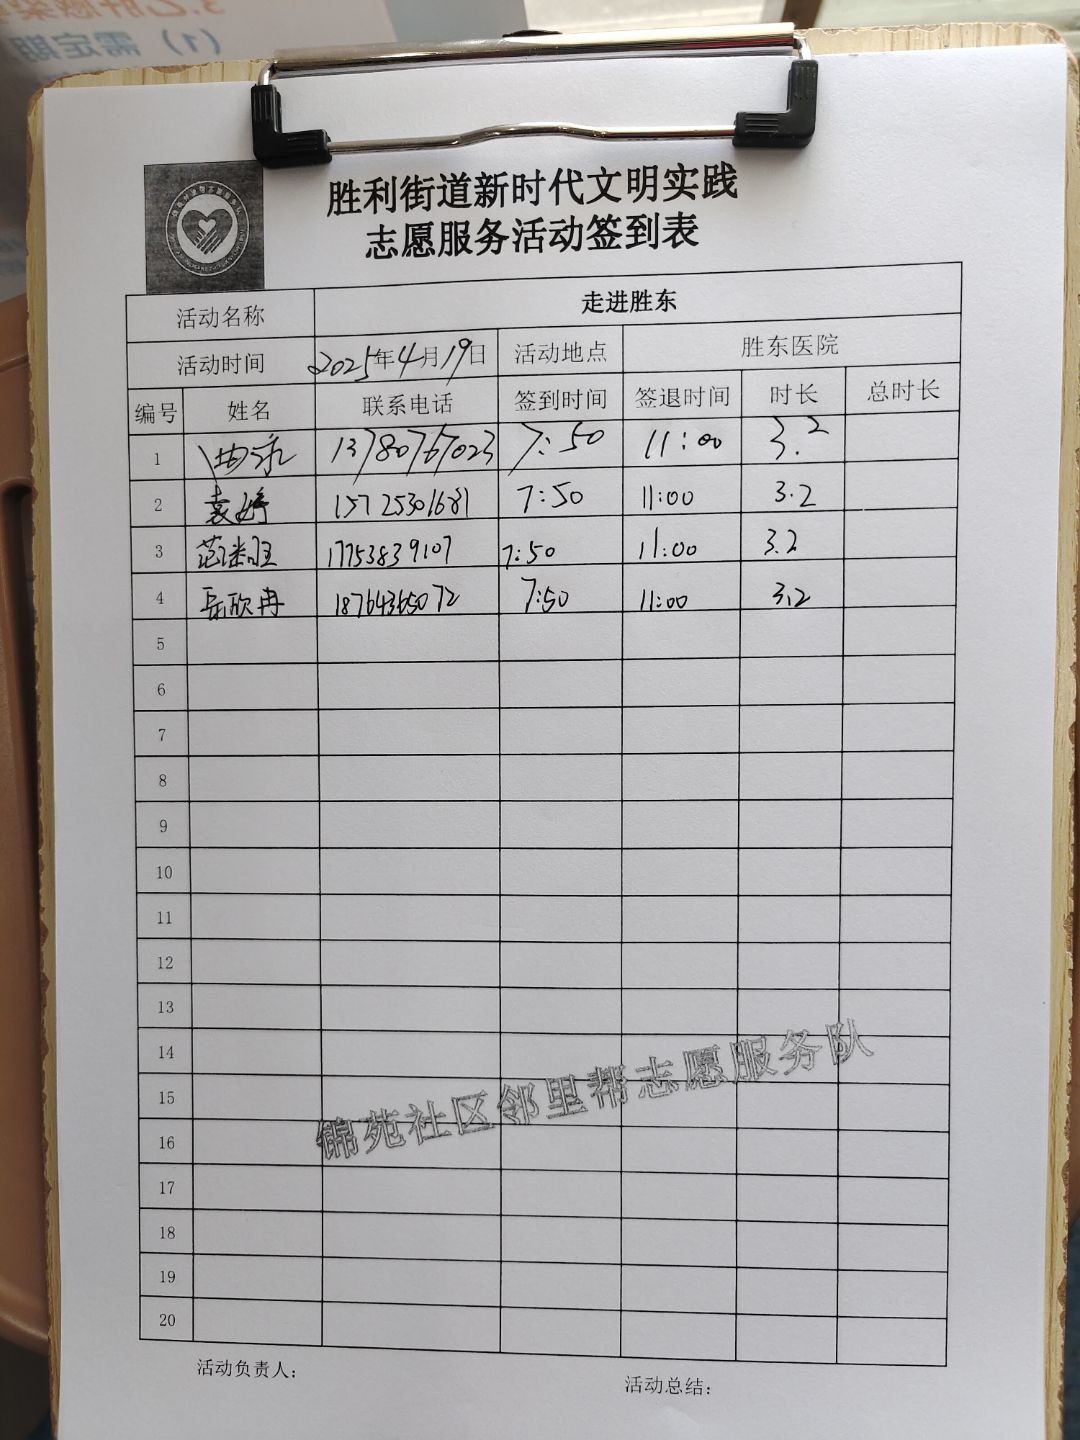 3.乙肝感染
(1) 需定期
胜利街道新时代文明实践
志愿服务活动签到表
活动名称 走进胜东
活动时间 2025年4月19日 活动地点 胜东医院
编号 姓名 联系电话 签到时间 签退时间 时长 总时长
1 13780767023 7:50 11:00 3.2
2 袁婷 15725301681 7:50 11:00 3.2
3 17753839107 7:50 11:00 3.2
4 岳欣冉 18764365072 7:50 11:00 3.2
5
6
7
8
9
10
11
12
13
14
15
16
17
18
19
20
锦苑社区邻里帮志愿服务队
活动负责人：
活动总结：